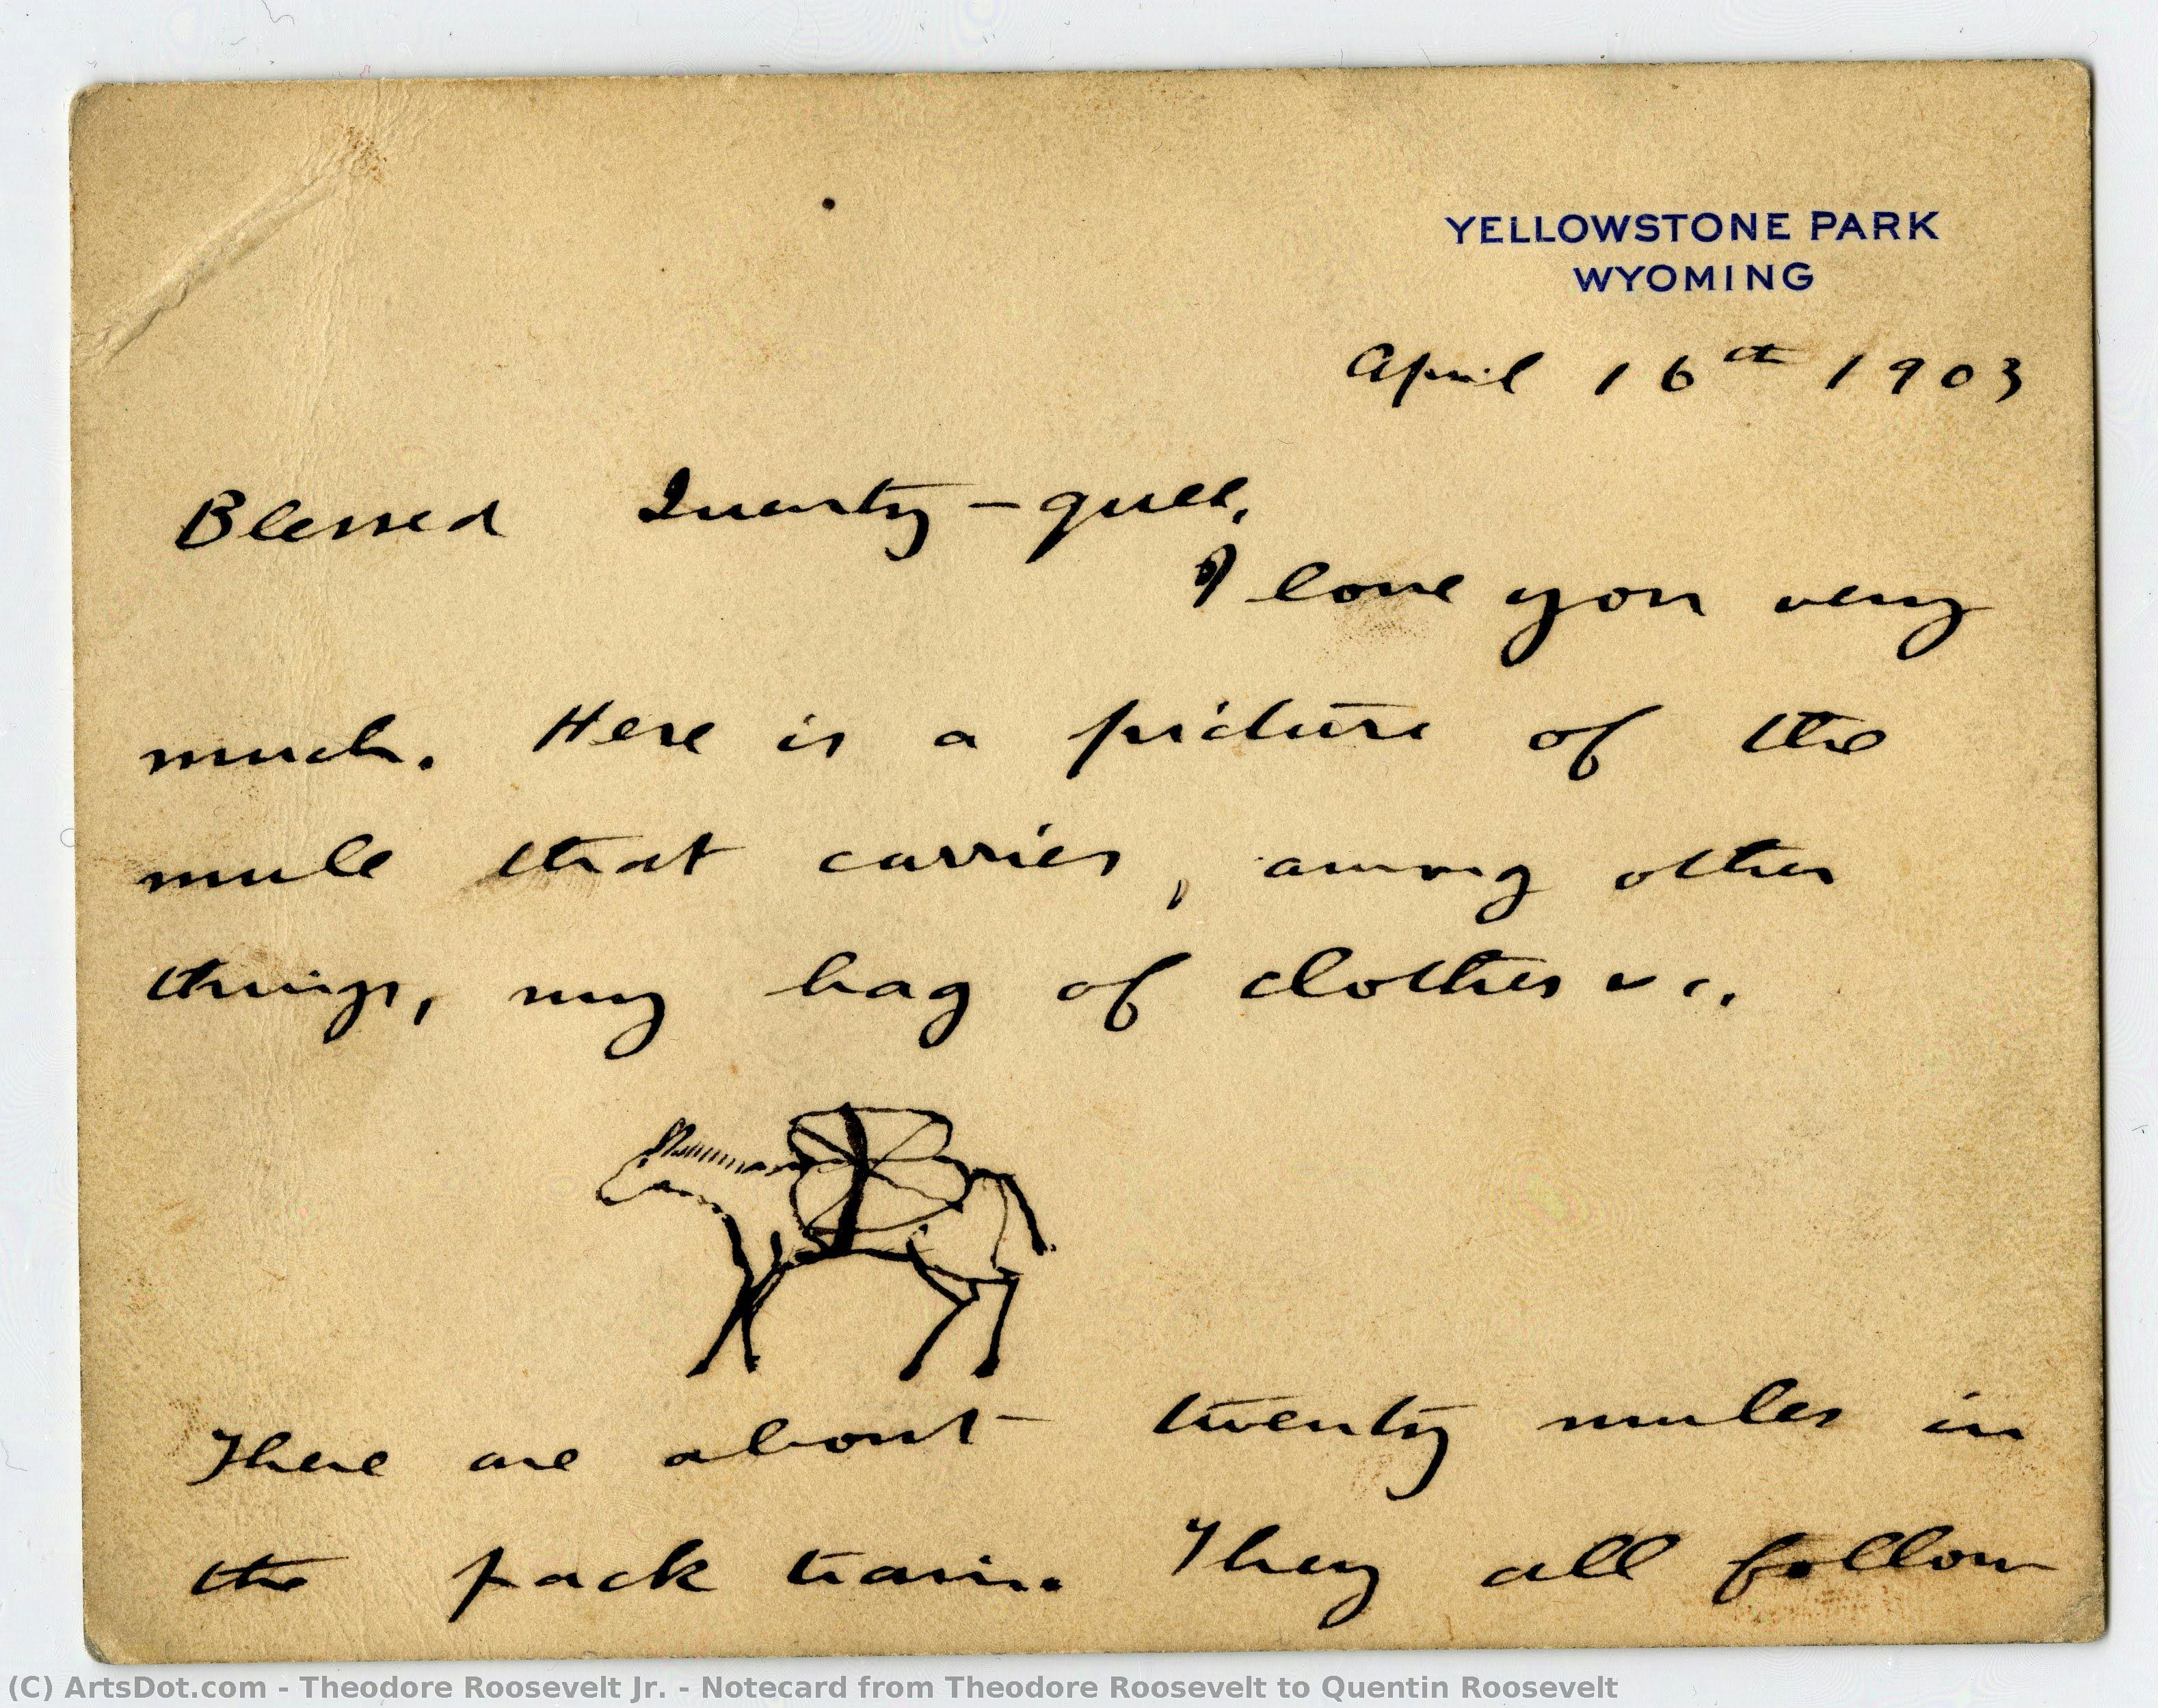 YELLOWSTONE PARK
WYOMING
April 16th 1903
Blessed Quenty-quee,
I love you very
much. Here is a picture of the
mule that carries, among other
things, my bag of clothes &c.
There are about twenty mules in
the pack train. They all follow
(C) ArtsDot.com - Theodore Roosevelt Jr. - Notecard from Theodore Roosevelt to Quentin Roosevelt